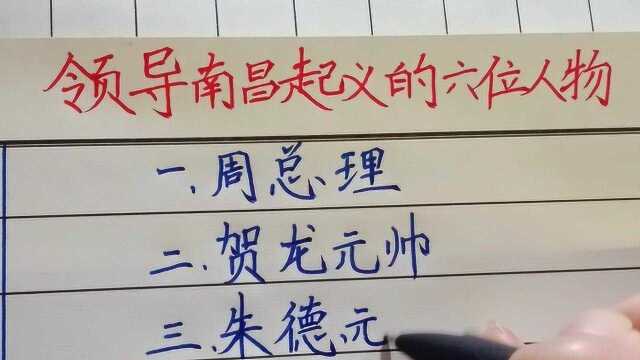 领导南昌起义的六位人物
一、周总理
二、贺龙元帅
三、朱德元